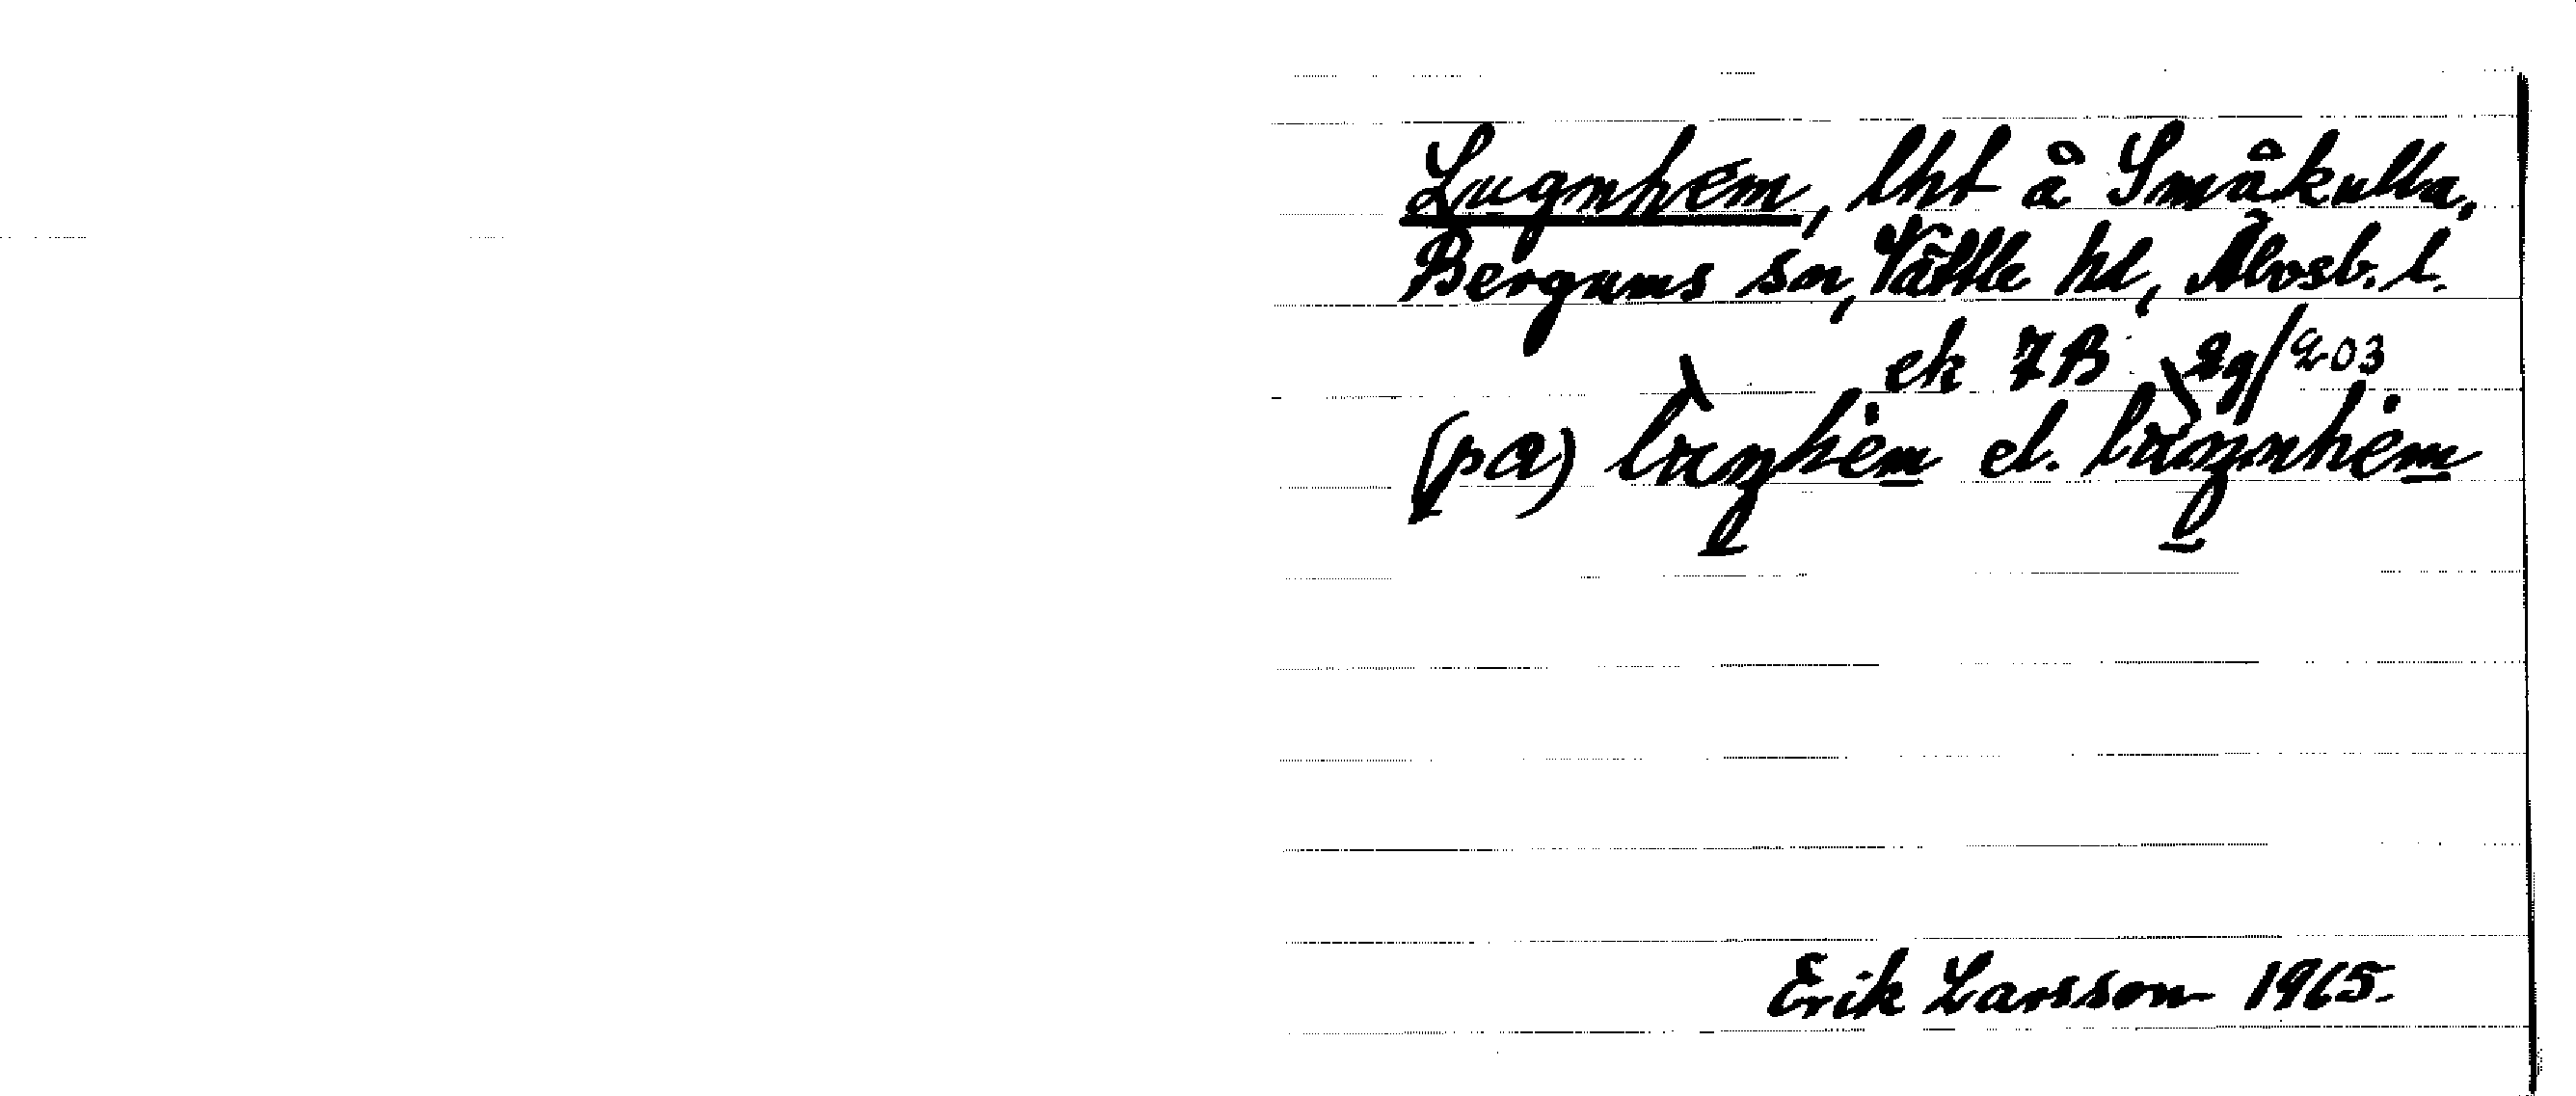 Lugnhem, lht å Småkulla,
Bergums sn, Vättle hd, Älvsb. l.
ek 7B 2g/203
(pa) lɯŋhèm el. lɯŋnhèm
Erik Larsson 1965.